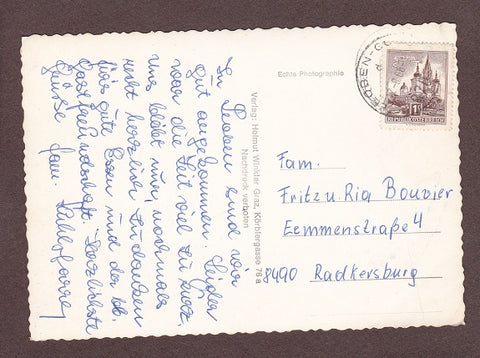 In Leoben sind wir
gut angekommen. Leider
war die Zeit viel zu kurz.
Uns bleibt nur, nochmals
recht herzlich zu danken
fürs gute Essen und der
Gastfreundschaft. Herzlichste
Grüße Fam.
Echte Photographie
Verlag: Helmut Winkler Graz, Körblergasse 76 a
Nachdruck verboten
LEOBEN-GÖ
REPUBLIK ÖSTERREICH
Fam.
Fritz u. Ria Bouvier
Eemmenstraße 4
8490 Radkersburg